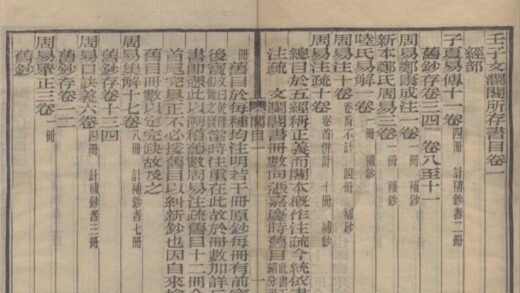 壬子文瀾閣所存書目卷一
經部
子夏易傳十一卷 四冊 計補鈔者二冊
舊鈔存卷三四 卷八至十一
周易鄭康成注一卷 一冊 補鈔
新本鄭氏周易三卷 二冊 補鈔
陸氏易解一卷 一冊 補鈔
周易注十卷 卷首不計 四冊 補鈔
周易注疏十卷 卷首併計 十冊 補鈔
總目於五經稱正義而閣本概作注疏今統依書
注疏 文瀾閣書冊數向憑嘉慶時舊目
冊 舊目於每種均注明若干冊原鈔每冊有前
後寶 當時注重在此故於冊數加詳
書即憑此以溯稽舊數周易注疏舊目十二冊今
首尾完具正不必援舊目以糾新鈔也因自來
舊目冊數以定完缺故及之
周易集解十七卷 八冊 計補鈔者七冊
舊鈔存卷十三 十四
周易口訣義六卷 四冊 計補鈔者三冊
舊鈔存卷一 二
周易舉正三卷 一冊
舊鈔
閣目一
一